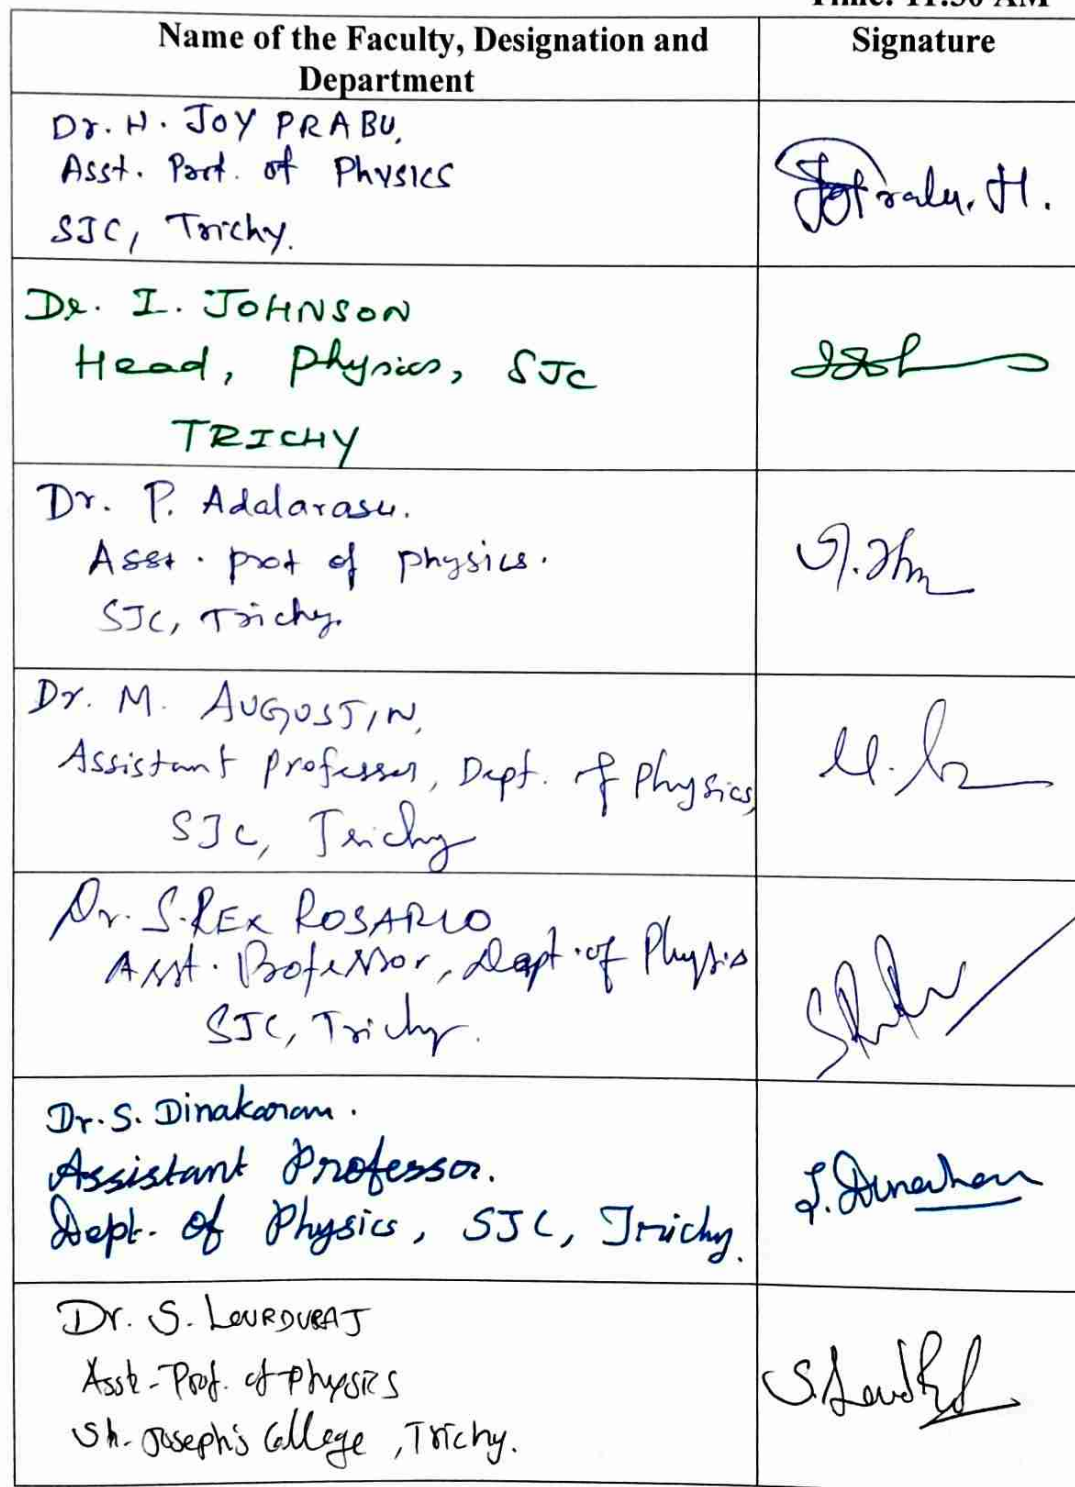 Time: 11:30 AM
Name of the Faculty, Designation and
Department
Signature
Dr. H. JOY PRABU,
Asst. Porf. of Physics
SJC, Trichy.
Dr. I. JOHNSON
Head, Physics, SJC
TRICHY
Dr. P. Adalarasu.
Asst. prof of physics.
SJC, Trichy.
Dr. M. AUGUSTIN,
Assistant professor, Dept. of Physics,
SJC, Trichy
Dr. S. REX ROSARIO
Asst. Professor, Dept. of Physis
SJC, Trichy.
Dr. S. Dinakaran.
Assistant Professor.
Dept. of Physics, SJC, Trichy.
S. Dinakaran
Dr. S. LOURDURAJ
Asst. Prof. of Physics
St. Joseph's College, Trichy.